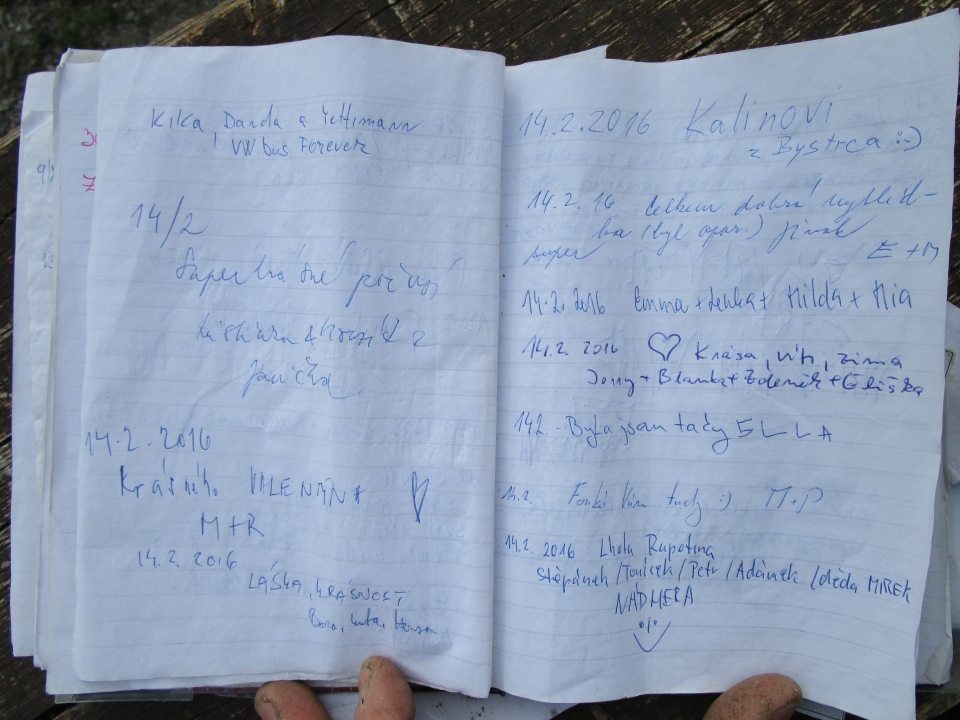 Kika, Danda a Yettimann
VW bus Forever
14/2
Super krásné počasí
14.2.2016
Krásného VALENTÝNA
M+R
14.2.2016
LÁSKA, KRÁSNOST
14.2.2016 Kalinovi
z Bystrca :-)
14.2.16 Celkem dobrá vyhlíd-
ka (byl opar.) jinak
super E+M
14.2.2016 Emma + Lenka + Milda + Mia
14.2.2016 Krása, vítr, zima
Jony + Blanka + Zdeněk + Eliška
142 - Byla jsem tady ELLA
14.2. Fouká Vám tady :) M+P
14.2.2016 Lhota Rapotina
Štěpánek/Toníček/Petr/Adámek/děda MIREK
NÁDHERA